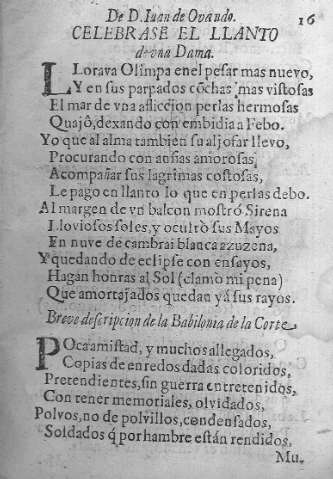 De D. Iuan de Ovando. 16
CELEBRASE EL LLANTO
de vna Dama.
LLorava Olimpa en el pesar mas nuevo,
Y en sus parpados cõchas mas vistosas
El mar de vna affliccion perlas hermosas
Quajò, dexando con embidia a Febo.
Yo que al alma tambien su aljofar llevo,
Procurando con ansias amorosas,
Acompañar sus lagrimas costosas,
Le pago en llanto lo que en perlas debo.
Al margen de vn balcon mostró Sirena
Lloviosos soles, y ocultò sus Mayos
En nuve de cambrai blanca azuzena,
Y quedando de eclipse con ensayos,
Hagan honras al Sol (clamò mi pena)
Que amortajados quedan yá sus rayos.
Breve descripcion de la Babilonia de la Corte
POca amistad, y muchos allegados,
Copias de enredos dadas coloridos,
Pretendientes, sin guerra entretenidos,
Con tener memoriales, olvidados,
Polvos, no de polvillos, condensados,
Soldados q̃ por hambre están rendidos,
Mu-